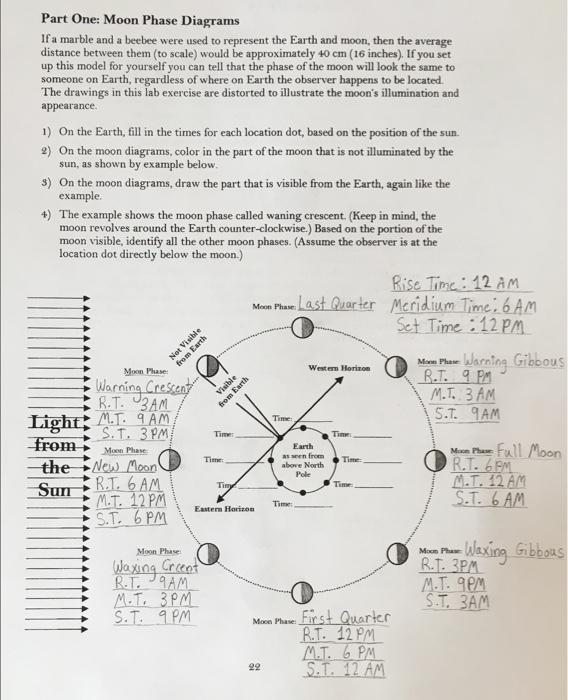 Part One: Moon Phase Diagrams
If a marble and a beebee were used to represent the Earth and moon, then the average
distance between them (to scale) would be approximately 40 cm (16 inches). If you set
up this model for yourself you can tell that the phase of the moon will look the same to
someone on Earth, regardless of where on Earth the observer happens to be located.
The drawings in this lab exercise are distorted to illustrate the moon's illumination and
appearance.
1) On the Earth, fill in the times for each location dot, based on the position of the sun.
2) On the moon diagrams, color in the part of the moon that is not illuminated by the
sun, as shown by example below.
3) On the moon diagrams, draw the part that is visible from the Earth, again like the
example.
4) The example shows the moon phase called waning crescent. (Keep in mind, the
moon revolves around the Earth counter-clockwise.) Based on the portion of the
moon visible, identify all the other moon phases. (Assume the observer is at the
location dot directly below the moon.)
Moon Phase: Last Quarter
Rise Time: 12 AM
Meridium Time: 6 AM
Set Time: 12 PM
Not Visible
from Earth
Visible
from Earth
Western Horizon
Moon Phase: Warning Gibbous
R.T. 9 PM
M.T. 3 AM
S.T. 9AM
Moon Phase:
Warning Crescent
R.T. 3AM
M.T. 9 AM
S.T. 3PM
Light
from
the
Sun
Time:
Time:
Time:
Time:
Time:
Time:
Time:
Time:
Earth
as seen from
above North
Pole
Moon Phase:
New Moon
R.T. 6 AM
M.T. 12PM
S.T. 6PM
Moon Phase: Full Moon
R.T. 6PM
M.T. 12 AM
S.T. 6 AM
Eastern Horizon
Moon Phase:
Waxing Crcent
R.T. 9AM
M.T. 3PM
S.T. 9PM
Moon Phase: Waxing Gibbous
R.T. 3PM
M.T. 9PM
S.T. 3AM
Moon Phase: First Quarter
R.T. 12 PM
M.T. 6 PM
S.T. 12 AM
22